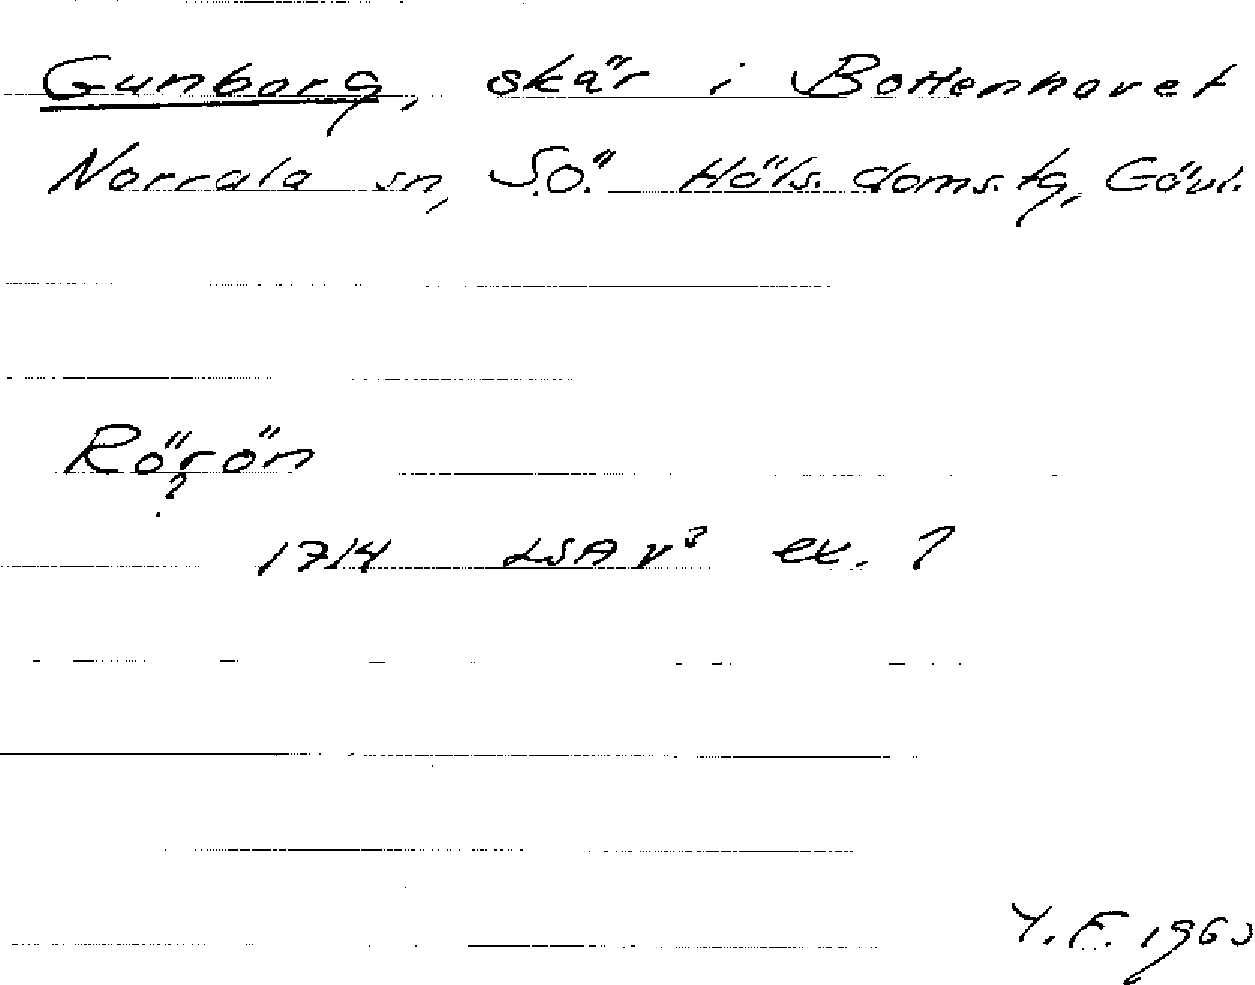 Gunborg, skär i Bottenhavet
Norrala sn, S.Ö. Häls. doms. tg, Gävl.
Rörön
?
1714 LSA v³ ex. ?
Y.F. 1960